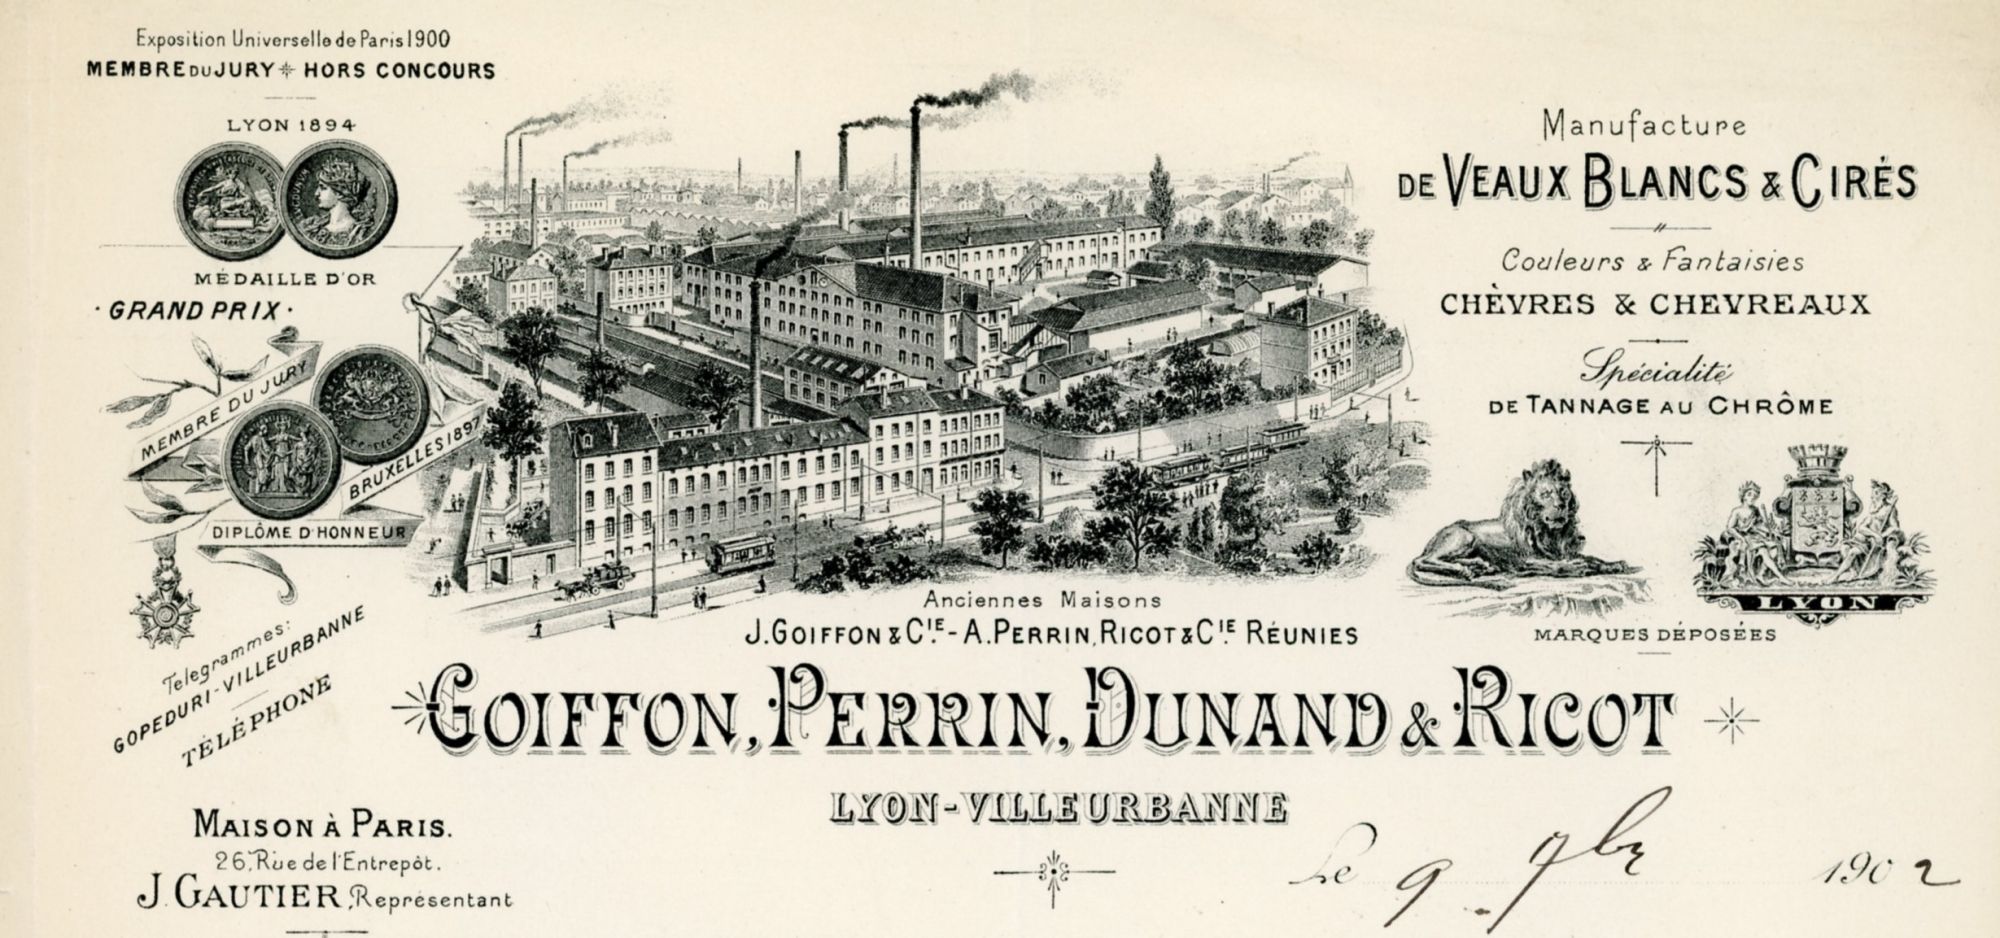 Exposition Universelle de Paris 1900
MEMBRE DU JURY HORS CONCOURS
LYON 1894
MÉDAILLE D'OR
· GRAND PRIX ·
MEMBRE DU JURY
BRUXELLES 1897
DIPLÔME D'HONNEUR
Telegrammes:
GOPEDURI-VILLEURBANNE
TÉLÉPHONE
MAISON À PARIS.
26, Rue de l'Entrepôt.
J. GAUTIER, Représentant
Manufacture
DE VEAUX BLANCS & CIRÉS
Couleurs & Fantaisies
CHÈVRES & CHEVREAUX
Spécialité
DE TANNAGE AU CHRÔME
LYON
MARQUES DÉPOSÉES
Anciennes Maisons
J. GOIFFON & CIE. - A. PERRIN, RICOT & CIE. RÉUNIES
GOIFFON, PERRIN, DUNAND & RICOT
LYON-VILLEURBANNE
Le 9 7bre 1902